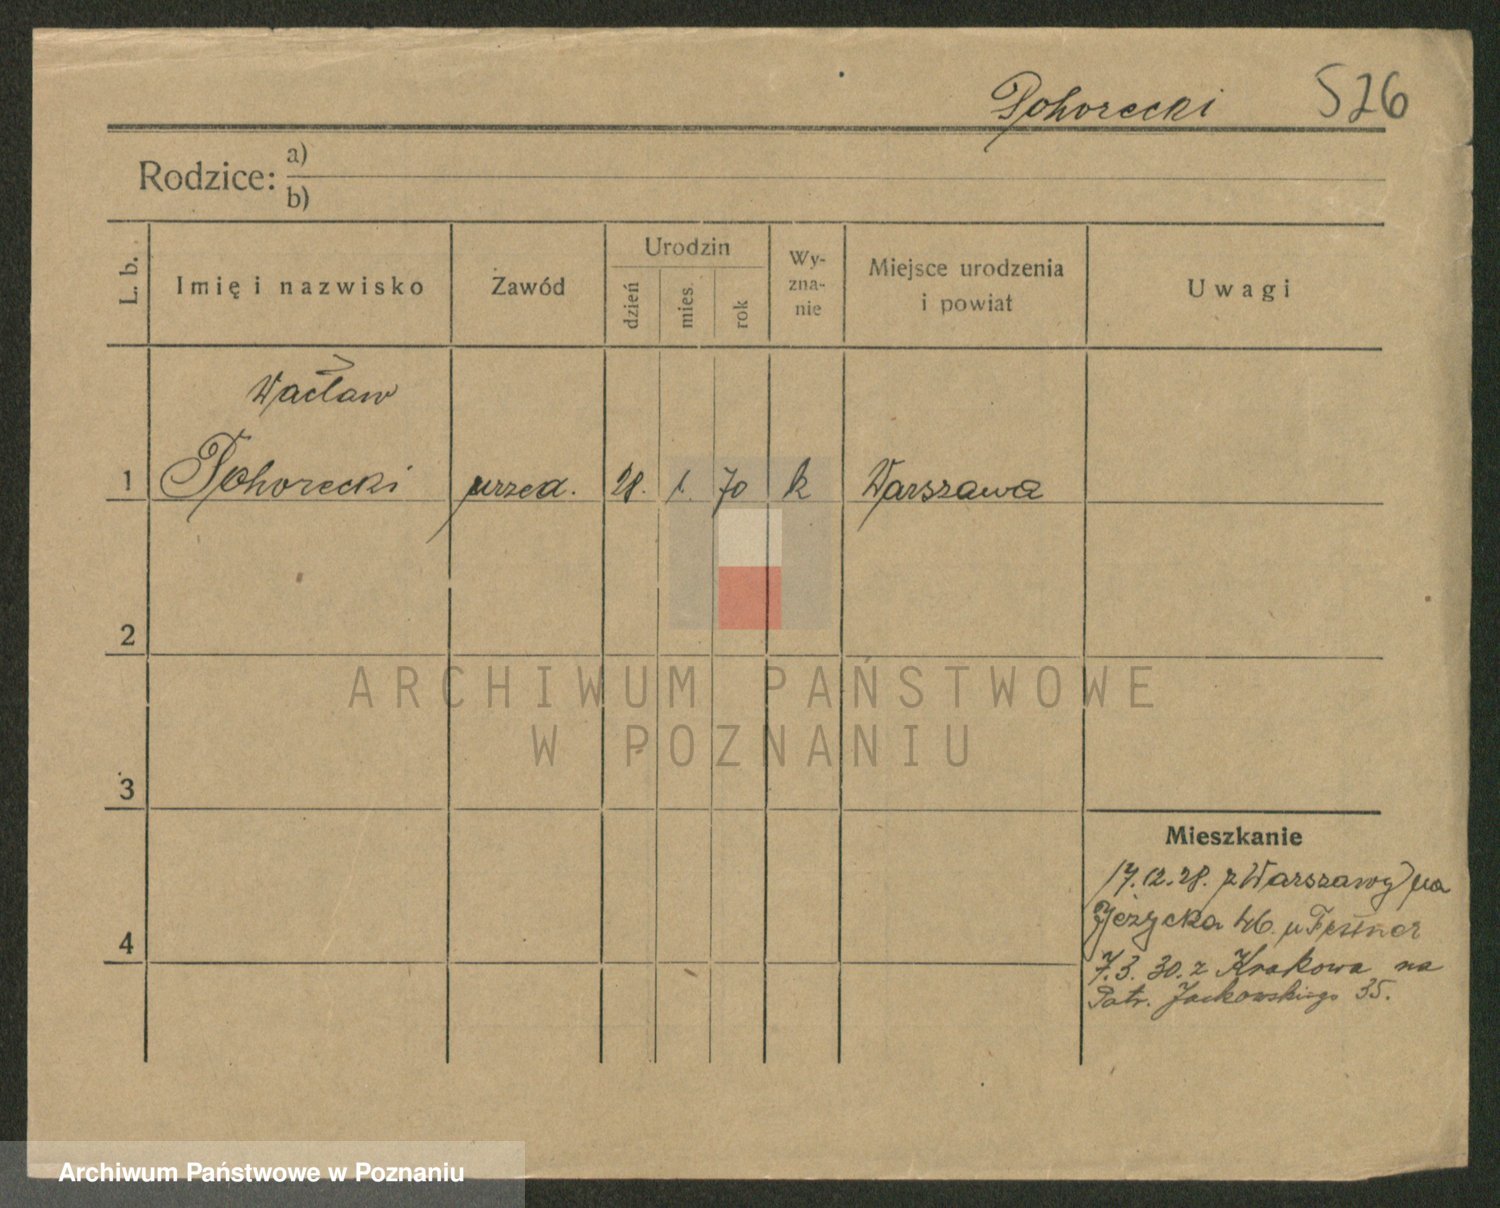 Pohorecki 526
Rodzice: a)
b)
L. b. Imię i nazwisko Zawód Urodzin dzień mies. rok Wy-zna-nie Miejsce urodzenia i powiat Uwagi
Wacław
1 Pohorecki urzęd. 28. 1. 70 k Warszawa
2
ARCHIWUM PAŃSTWOWE
W POZNANIU
3
Mieszkanie
17.12.28. z Warszawy na
Jeżycka 46. u
4
7.3.30. z Krakowa na
Patr. Jackowskiego 35.
Archiwum Państwowe w Poznaniu